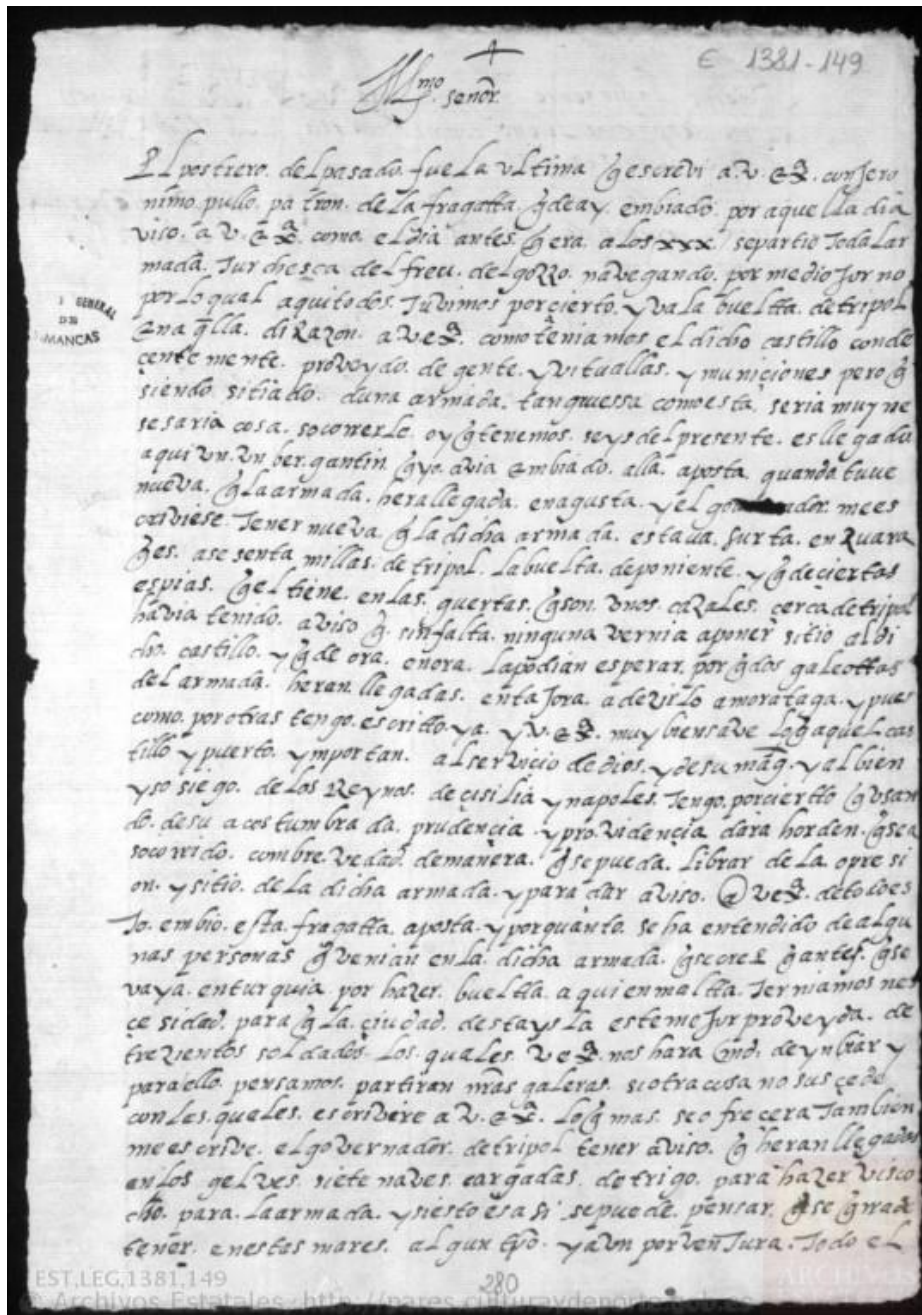 E 1381-149
Illmo señor
El postrero. del pasado. fue la ultima q̃ escrevi a. v. exª. con Jero
nimo. pullo. patron. de la fragatta. q̃ de ay. embiado. por aquella di a
viso. a v. exª. como. el dia antes. q̃ era. a los xxx. se partio Toda Lar
mada. Turchesca del freu. del gozzo. navegando. por medio Jorno
por lo qual aqui todos. Tuvimos por cierto. yva la buelta. de tripol
en aq̃lla. di Razon. a v. exª. como teniamos el dicho castillo conde
çentemente. proveydo. de gente. y vituallas. y muniçiones pero q̃
siendo sitiado. duna armada. tan gruessa como esta. seria muy ne
sesaria cosa. socorrerle. oy q̃ tenemos. seys del presente. es llegado
aqui un. vn bergantin q̃ yo. avia embiado. alla. aposta. quando tuve
nueva. q̃ la armada. hera llegada. en agusta. y el go dor. me es
criviese. Tener nueva. q̃ la dicha armada. estava. surta. en
a sesenta. millas. de tripol. la buelta. de poniente. y q̃ de ciertas
espias. q̃ el tiene. en las. q̃ son. unos. cazales. cerca de tripol
havia tenido. aviso q̃. sin falta. ninguna vernia a poner sitio al di
cho. castillo. y q̃ de ora. en ora. la podian esperar. por q̃ dos galeottas
del armada. heran llegadas. en taJora. a dezirlo a morataga. y pues
como. por otras tengo. escritto. ya. y v. exª. muy bien save lo q̃ aquel cas
tillo y puerto. ymportan. al serviçio de dios. y de su mag. y al bien
y sosiego. de los Reynos. de çisilia y napoles. Tengo. por ciertto q̃ usan
do. de su acostumbrada. prudençia. y providençia dara horden. q̃ sea
socorrido. com brevedad. de manera. q̃ se pueda. Librar de la opresi
on. y sitio. de la dicha armada. y para dar aviso. a v exª. de todo es
To. embio. esta. fragatta. aposta. y por quanto. se ha entendido de algu
nas personas q̃ venian en la. dicha armada. q̃ se cree q̃ antes. q̃ se
vaya. en turquia. por hazer. buelta. aqui en maltta. Terniamos nes
çesidad. para q̃ la. çiudad. destaysla estemeJor proveyda. de
trezientos soldados. Los quales. v exª. nos hara md. de ynbiar y
para ello. pensamos. partiran nras galeras. si otra cosa no susçede
con les. queles. escrivire a v. exª. lo q̃ mas. se ofrecera. Tambien
me escrive. el governador. de tripol tener aviso. q̃ heran llegados
en los gelves. siete naves. cargadas. de trigo. para hazer visco
cho. para. la armada. y si esto es asi se puede. pensar q̃ se q̃rra de
tener. en estas mares. algun tpõ. y aun por venTura. Todo el
280
EST,LEG,1381,149
© Archivos Estatales. http://pares.culturaydeporte
ARCHIVOS